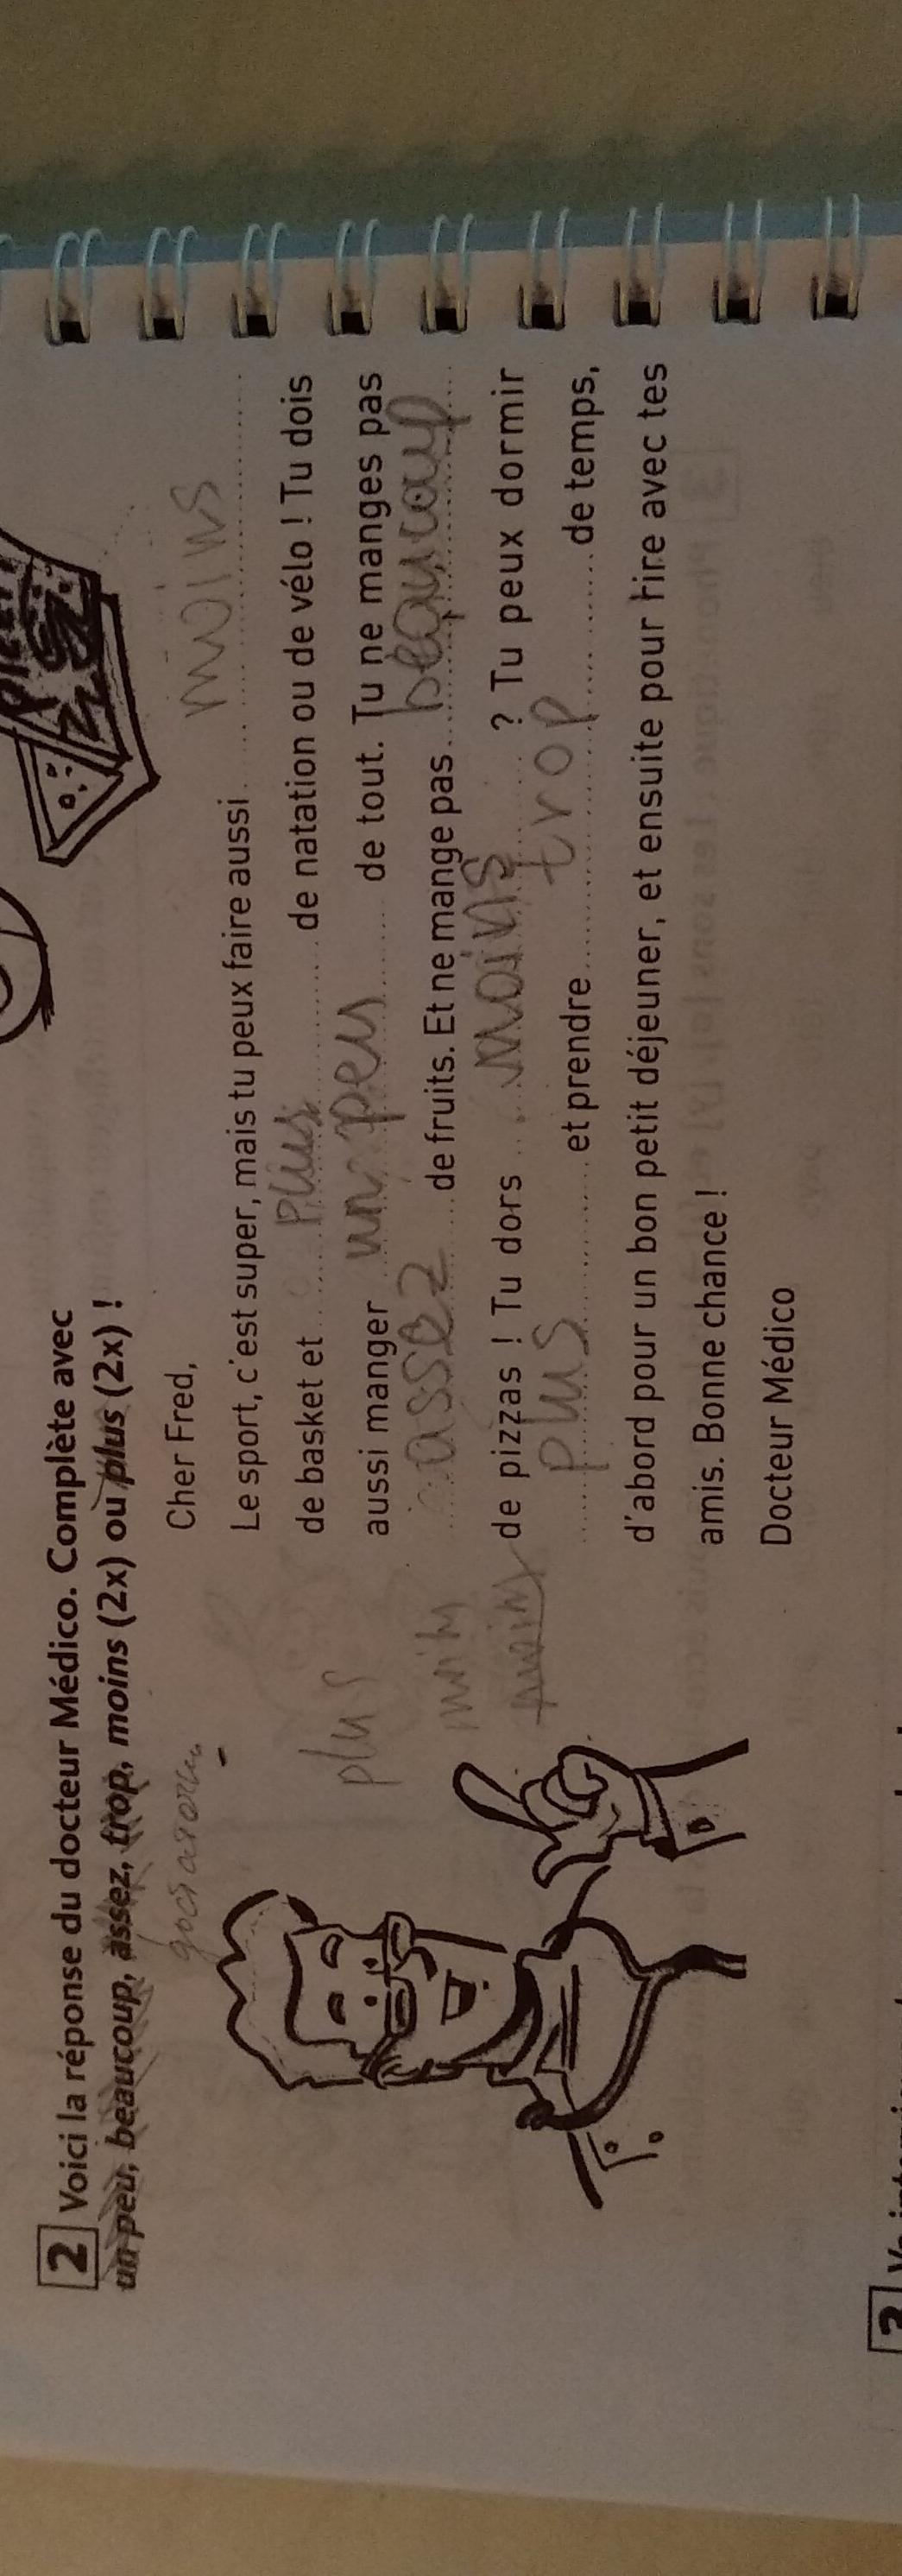 2 Voici la réponse du docteur Médico. Complète avec
un peu, beaucoup, assez, trop, moins (2x) ou plus (2x) !
Cher Fred,
Le sport, c'est super, mais tu peux faire aussi moins
de basket et plus de natation ou de vélo ! Tu dois
plus
aussi manger un peu de tout. Tu ne manges pas
assez de fruits. Et ne mange pas beaucoup
de pizzas ! Tu dors moins ? Tu peux dormir
plus et prendre trop de temps,
d'abord pour un bon petit déjeuner, et ensuite pour rire avec tes
amis. Bonne chance !
Docteur Médico